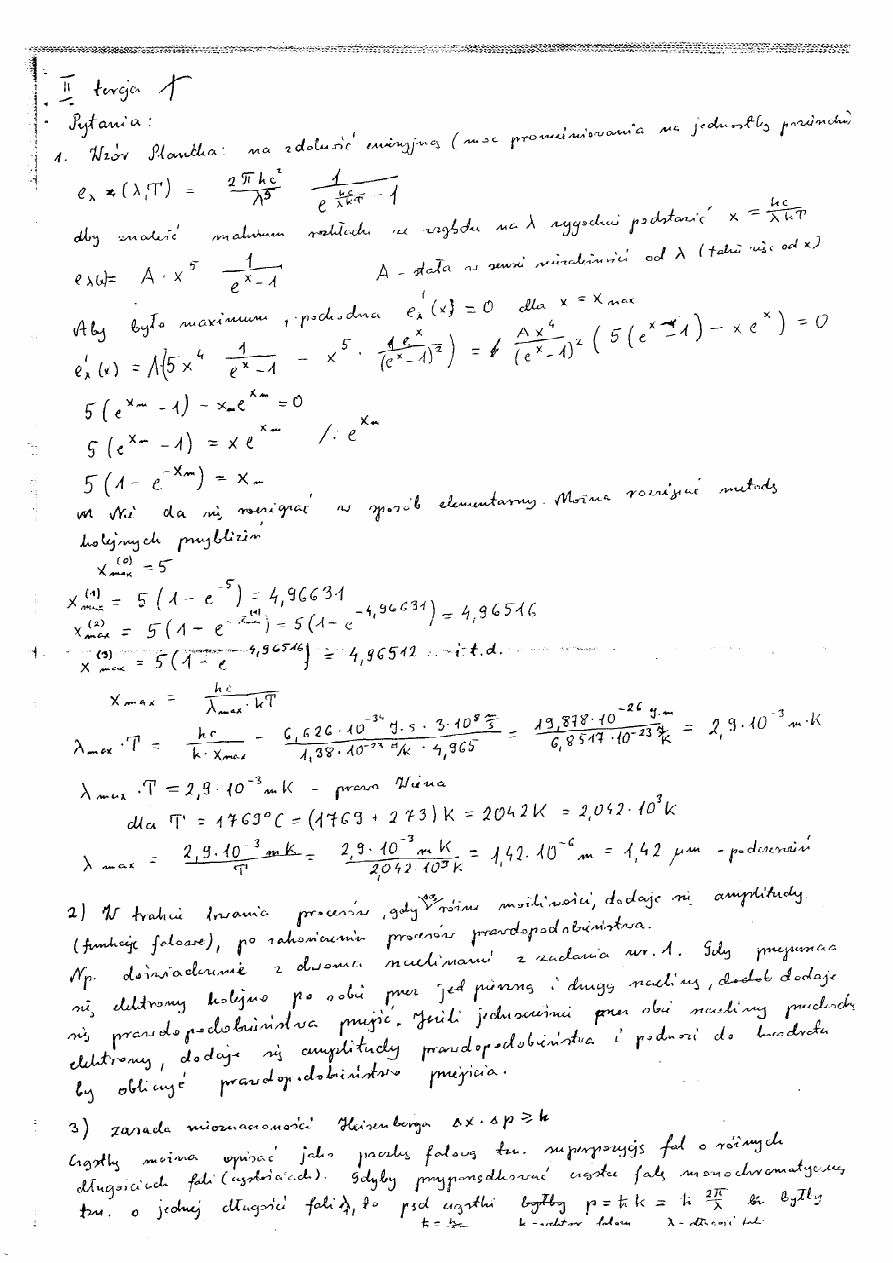 II tercja T
Pytania:
1. Wzór Plancka: na zdolność emisyjną (moc promieniowania na jednostkę powierzchni)
e_λ (λ,T) = 2πhc²/λ⁵ 1/(e^(hc/λkT) - 1)
Aby znaleźć maksimum rozkładu ze względu na λ wygodnie podstawić x = hc/λkT
e_λ(x) = A·x⁵ 1/(e^x - 1) A - stała w sensie niezależności od λ (także więc od x)
Aby było maximum, pochodna e'_λ(x) = 0 dla x = x_max
e'_λ(x) = A(5x⁴ 1/(e^x - 1) - x⁵ · 1·e^x/(e^x - 1)²) = Ax⁴/(e^x - 1)² (5(e^x - 1) - xe^x) = 0
5(e^(x_m) - 1) - x_m e^(x_m) = 0
5(e^(x_m) - 1) = x e^(x_m) /: e^(x_m)
5(1 - e^(-x_m)) = x_m
Nie da się rozwiązać w sposób elementarny. Można rozwiązać metodą
kolejnych przybliżeń
x_max^(0) = 5
x_max^(1) = 5(1 - e^(-5)) = 4,96631
x_max^(2) = 5(1 - e^(-x^(1))) = 5(1 - e^(-4,96631)) = 4,96516
x_max^(3) = 5(1 - e^(-4,96516)) = 4,96512 ... i t.d.
x_max = hc/(λ_max · kT)
λ_max · T = hc/(k · x_max) = 6,626·10⁻³⁴ J·s · 3·10⁸ m/s / 1,38·10⁻²³ J/K · 4,965 = 19,878·10⁻²⁶ J·m / 6,8517·10⁻²³ J/K = 2,9·10⁻³ m·K
λ_max · T = 2,9·10⁻³ mK - prawo Wiena
dla T = 1769°C = (1769 + 273)K = 2042K = 2,042·10³K
λ_max = 2,9·10⁻³ mK / T = 2,9·10⁻³ mK / 2,042·10³K = 1,42·10⁻⁶ m = 1,42 μm - podczerwień
2) W trakcie trwania procesów, gdy są różne możliwości, dodaje się amplitudy
(funkcje falowe), po zakończeniu procesów prawdopodobieństwa.
Np. doświadczenie z dwoma szczelinami z zadania nr. 1. Gdy przepuszcza
się elektrony kolejno po sobie przez jedną i drugą szczelinę, dodaje
się prawdopodobieństwa przejść. Jeśli jednocześnie przez obie szczeliny przechodzą
elektrony, dodaje się amplitudy prawdopodobieństwa i podnosi do kwadratu
by obliczyć prawdopodobieństwo przejścia.
3) Zasada nieoznaczoności Heisenberga Δx · Δp ≥ ħ
Cząstkę można opisać jako paczkę falową tzn. superpozycję fal o różnych
długościach fali (częstościach). Gdyby przyporządkować cząstce falę monochromatyczną
tzn. o jednej długości fali λ, to pęd cząstki byłby p = ħk = ħ 2π/λ byłby
k - wektor falowy λ - długość fali